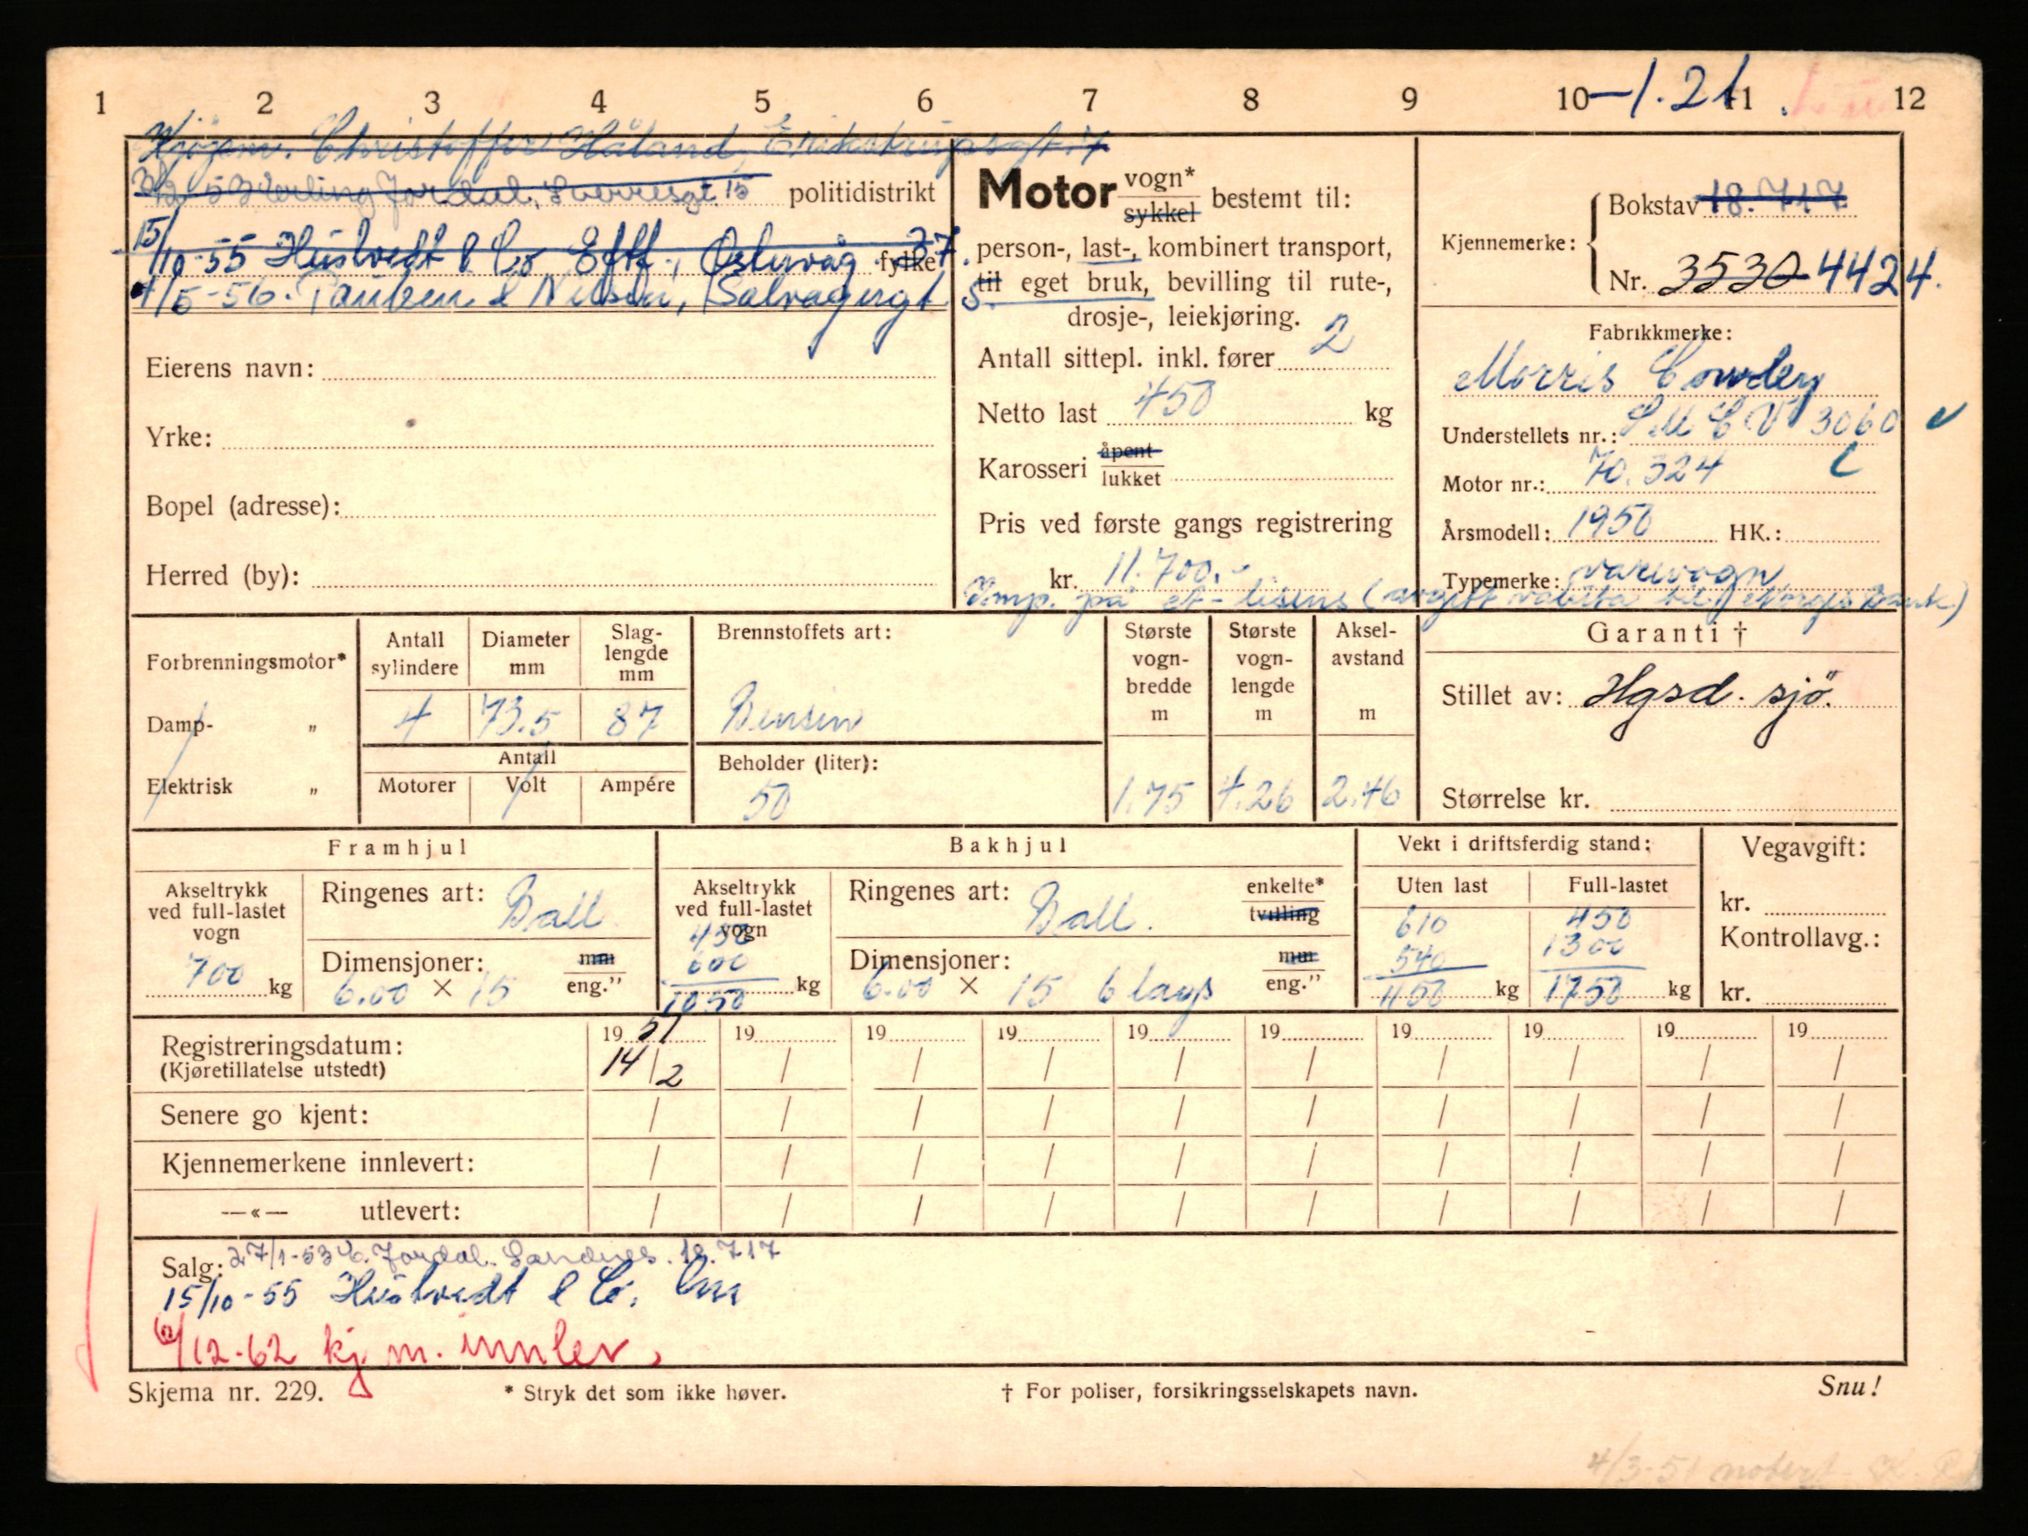 1 2 3 4 5 6 7 8 9 10 -1.21 11 12
Kjøpm. Christoffer Håland,
53 Erling Jordal, Sverresgt. 15 politidistrikt
15/10-55 Hustvedt & Co Eftf., 37. fylke
4/5-56. Paulsen & Nilsen,
Eierens navn:
Yrke:
Bopel (adresse):
Herred (by):
Motor vogn* sykkel bestemt til:
person-, last-, kombinert transport,
til eget bruk, bevilling til rute-,
drosje-, leiekjøring.
Antall sittepl. inkl. fører 2
Netto last 450 kg
Karosseri åpent lukket
Pris ved første gangs registrering
kr. 11.700.-
Imp. på lisens (avgift til Norges Bank.)
Kjennemerke: Bokstav 18.717
Nr. 3530 4424.
Fabrikkmerke:
Morris Cowley
Understellets nr.: SMCV 3060
Motor nr.: 70.324
Årsmodell: 1950 HK.:
Typemerke: varevogn
Forbrenningsmotor*
Damp- „
Elektrisk „
Antall sylindere Diameter mm Slag-lengde mm
4 73.5 87
Antall
Motorer Volt Ampére
Brennstoffets art:
Bensin
Beholder (liter):
50
Største vogn-bredde m
1.75
Største vogn-lengde m
4.26
Aksel-avstand m
2.46
Garanti †
Stillet av: Hgsd. sjö.
Størrelse kr.
Framhjul
Akseltrykk ved full-lastet vogn
700 kg
Ringenes art: Ball.
Dimensjoner: mm
6.00 × 15 eng."
Bakhjul
Akseltrykk ved full-lastet vogn
450
600
1050 kg
Ringenes art: Ball. enkelte* tvilling
Dimensjoner: mm
6.00 × 15 6 lags eng."
Vekt i driftsferdig stand:
Uten last Full-lastet
610 450
540 1300
1150 kg 1750 kg
Vegavgift:
kr.
Kontrollavg.:
kr.
Registreringsdatum: 19 51 19 19 19 19 19 19 19 19 19
(Kjøretillatelse utstedt) 14/2 / / / / / / / / /
Senere go kjent: / / / / / / / / / /
Kjennemerkene innlevert: / / / / / / / / / /
—«— utlevert: / / / / / / / / / /
Salg: 27/1-53 E. Jordal. Sandnes. 18.717
15/10-55 Hustvedt & Co.
/12-62 kj m. innlev.
Skjema nr. 229. * Stryk det som ikke høver. † For poliser, forsikringsselskapets navn. Snu!
4/3-51